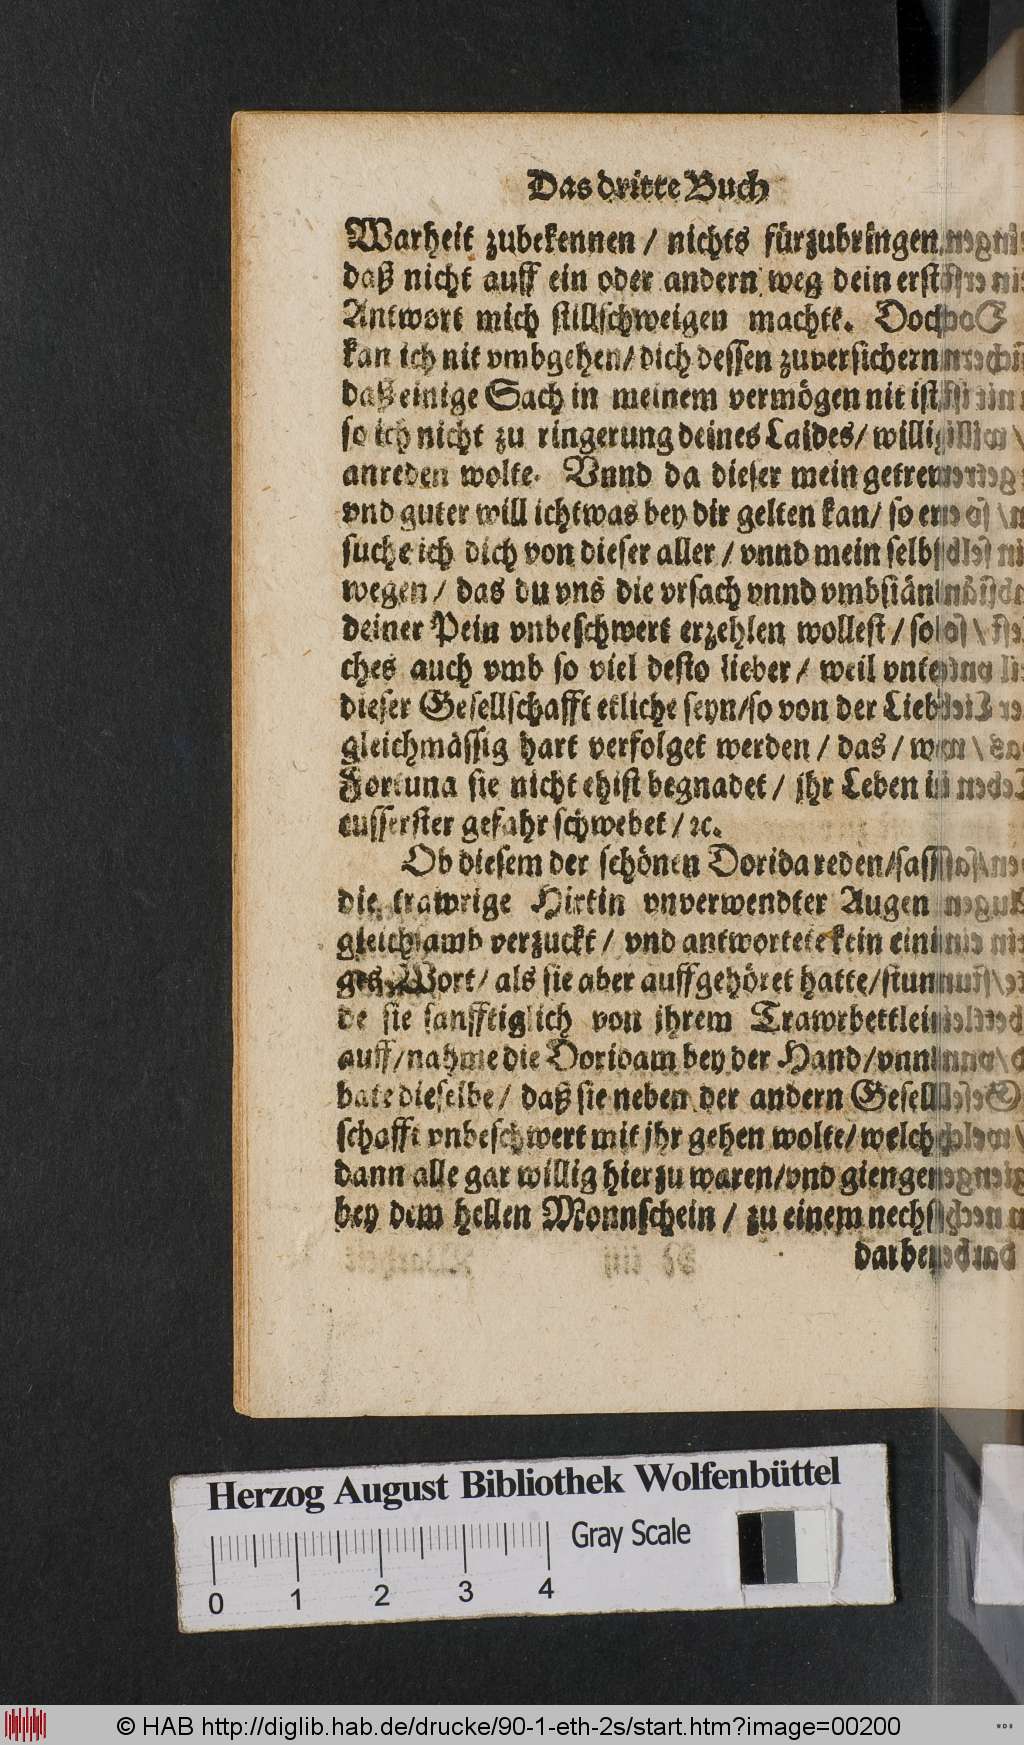 Das dritte Buch
Warheit zubekennen / nichts fürzubringen,
daß nicht auff ein oder andern weg dein erst
Antwort mich stillschweigen machte. Doch
kan ich nit vmbgehen / dich dessen zuversichern
daß einige Sach in meinem vermögen nit ist
so ich nicht zu ringerung deines Laides / willig
anreden wolte. Vnnd da dieser mein getrew
vnd guter will ichtwas bey dir gelten kan / so er
suche ich dich von dieser aller / vnnd mein selbs
wegen / das du vns die vrsach vnnd vmbstän
deiner Pein vnbeschwert erzehlen wollest / sol
ches auch vmb so viel desto lieber / weil vnter
dieser Gesellschafft etliche seyn / so von der Lieb
gleichmässig hart verfolget werden / das / wo
Fortuna sie nicht ehist begnadet / jhr Leben in
eusserster gefahr schwebet / ꝛc.
Ob diesem der schönen Dorida reden / sass
die trawrige Hirtin vnverwendter Augen
gleichsamb verzuckt / vnd antwortete kein eini
ges Wort / als sie aber auffgehöret hatte / stun
de sie sanfftiglich von jhrem Trawrbettlein
auff / nahme die Doridam bey der Hand / vnn
bate dieselbe / daß sie neben der andern Gesell
schafft vnbeschwert mit jhr gehen wolte / welche
dann alle gar willig hierzu waren / vnd giengen
bey dem hellen Monnschein / zu einem nechst
darbey
Herzog August Bibliothek Wolfenbüttel
Gray Scale
0 1 2 3 4
© HAB http://diglib.hab.de/drucke/90-1-eth-2s/start.htm?image=00200